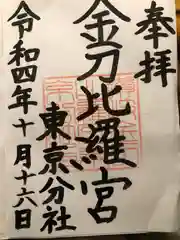 奉拝
金刀比羅宮
東京分社
令和四年十月十六日